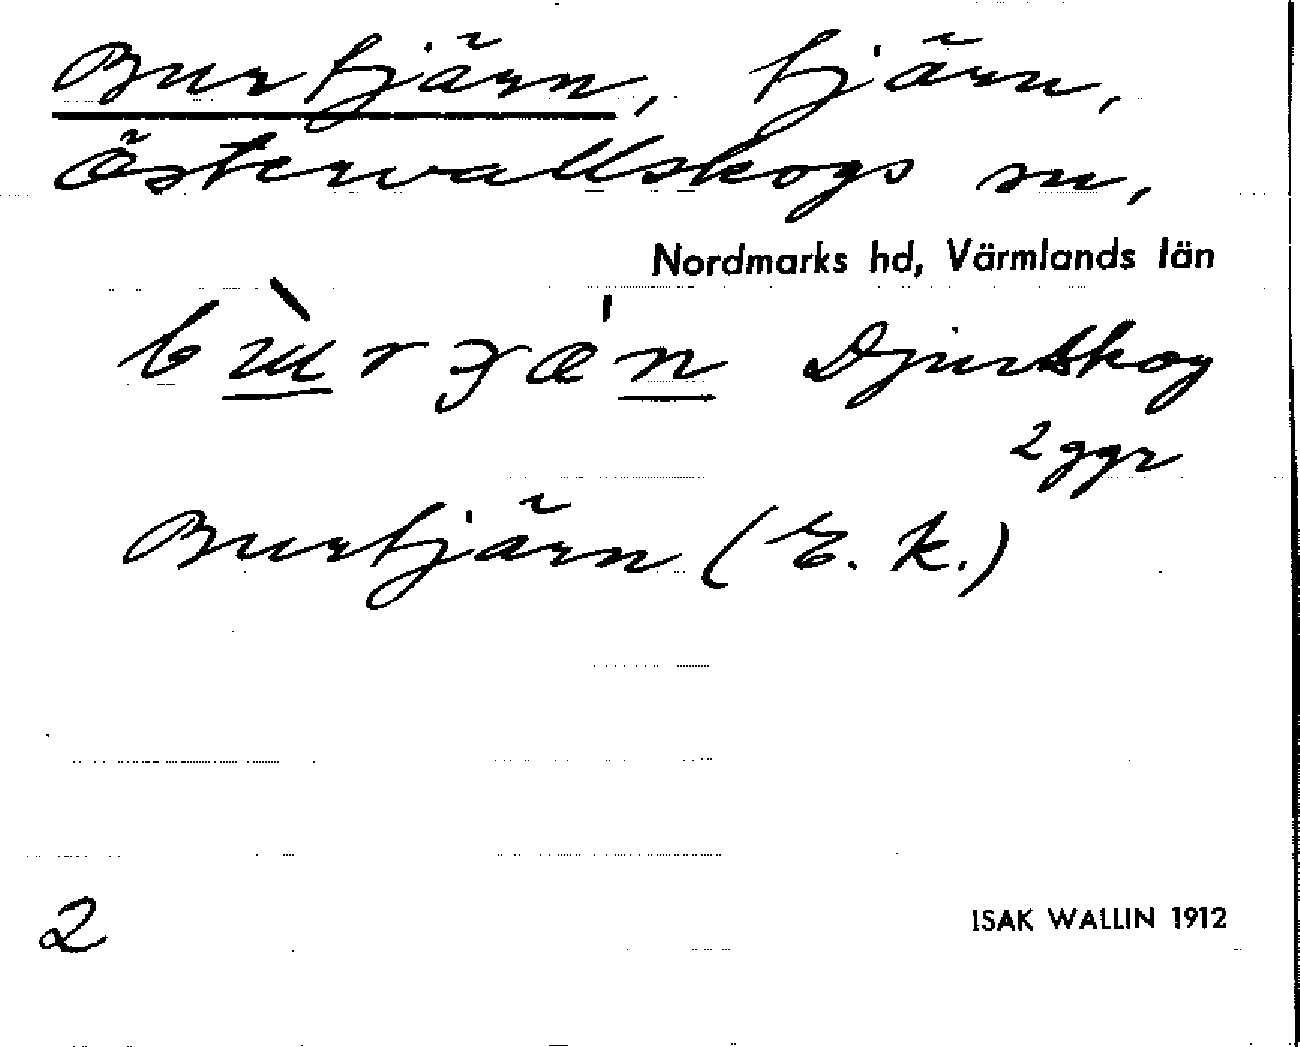 Burtjärn, tjärn,
Östervallskogs sn,
Nordmarks hd, Värmlands län
Djurskog
2 ggr
Burtjärn (E. K.)
2
ISAK WALLIN 1912